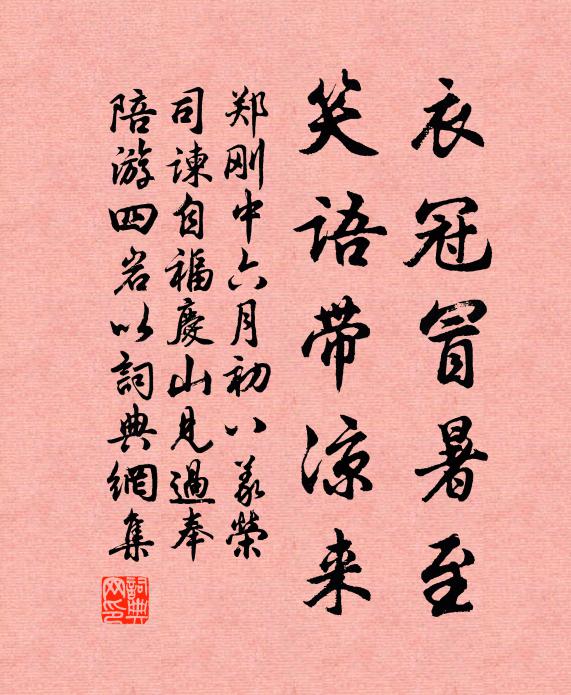 衣冠冒暑至
笑语带凉来
郑刚中六月初八义荣
司谏自福庆山见过奉
陪游四岩以词典网集
詞典网印